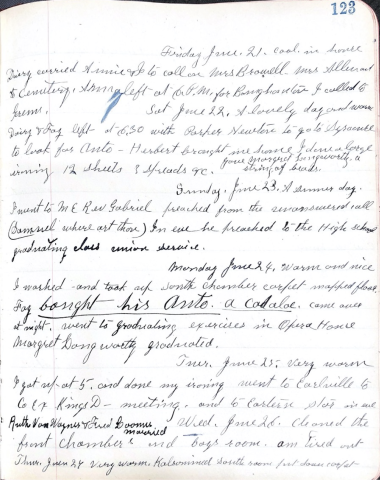 123
Friday June 21. Cool. in house
Diary carried Annie & I to call on Mrs Browell. Mrs Allen out
to Cemetery. Anna left at 6 P.M. for Binghamton I called to
Sat June 22. A lovely day and warm
& Fay left at 6.30 with Parker Newton to go to Syracuse
to look for Auto - Herbert brought me home I done a large
gave Margret Longworthy a
ironing 12 Sheets 3 Spreads &c. string of beads.
Sunday. June 23. A summer day.
I went to M E Rev Gabriel preached from the unanswered call
(where art thou) In eve he preached to the High school
graduating class union service.
Monday June 24. Warm and nice
I washed and took up South chamber carpet mopped floor
Fay bought his Auto. a came over
at night. went to graduating exercises in Opera House
Margret Longworthy graduated.
Tues. June 25. Very warm
I got up at 5. and done my ironing went to Earlville to
Co Ex Kings D - meeting. and to Eastern Star in eve
Ruth Van Wagner & Fred married Wed. June 26. Cleaned the
front Chamber and boys room. am tired out
Thur. June 27 Very warm. Kalsomined South room put down carpet